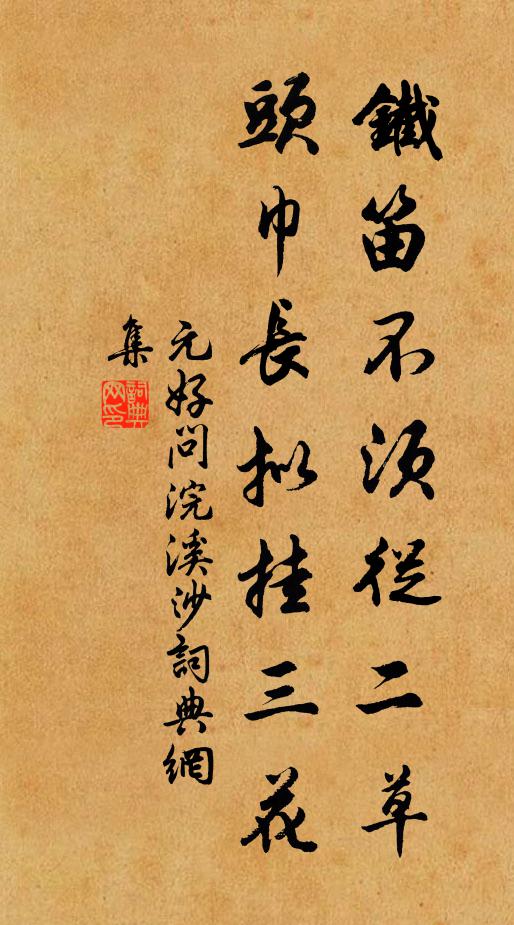 鐵笛不須從二草
頭巾長拟挂三花
元好問浣溪沙詞典網
集
詞典网印